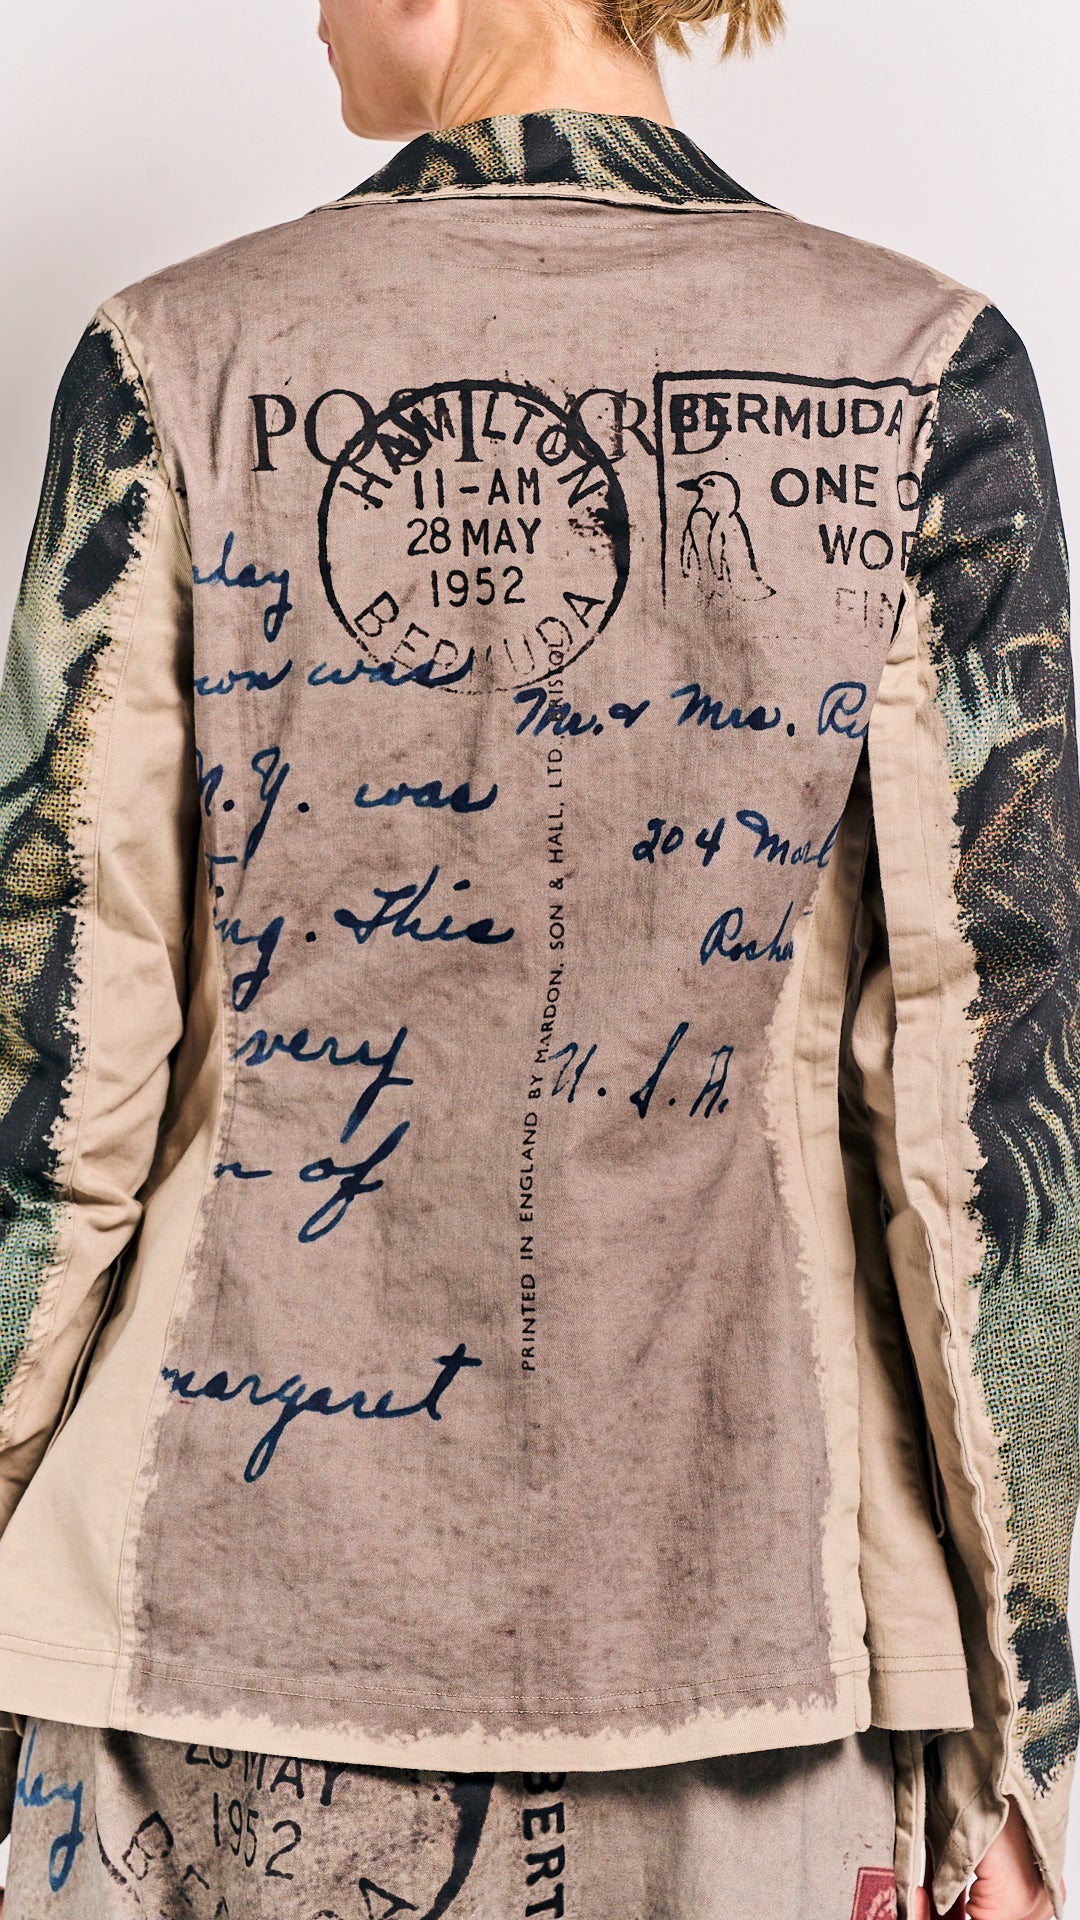 POST CARD
HAMILTON
11-AM
28 MAY
1952
BERMUDA
BERMUDA
ONE O
WOR
FIN
day
was
N.Y. was
ing. This
very
n of
margaret
Mr. & Mrs. Ru
204 Marl
Roche
U.S.A.
PRINTED IN ENGLAND BY MARDON, SON & HALL, LTD. BRISTOL
day
28 MAY
1952
BERT